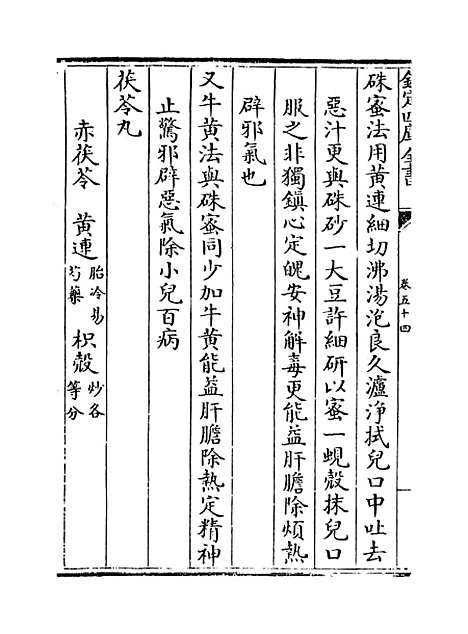 欽定四庫全書
卷五十四
硃蜜法用黄連細切沸湯泡良久瀘浄拭兒口中吐去
惡汁更與硃砂一大豆許細研以蜜一蜆殼抹兒口
服之非獨鎮心定魄安神解毒更能益肝膽除煩熱
辟邪氣也
又牛黄法與硃蜜同少加牛黄能益肝膽除熱定精神
止驚邪辟惡氣除小兒百病
茯苓丸
赤茯苓 黄連胎冷易芍藥 枳殼炒各等分